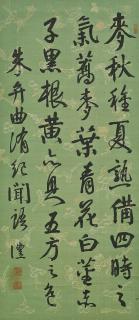 麥秋種夏熟備四時之
氣蕎麥葉青花白莖赤
子黑根黃亦具五方之色
朱弁曲洧紀聞語